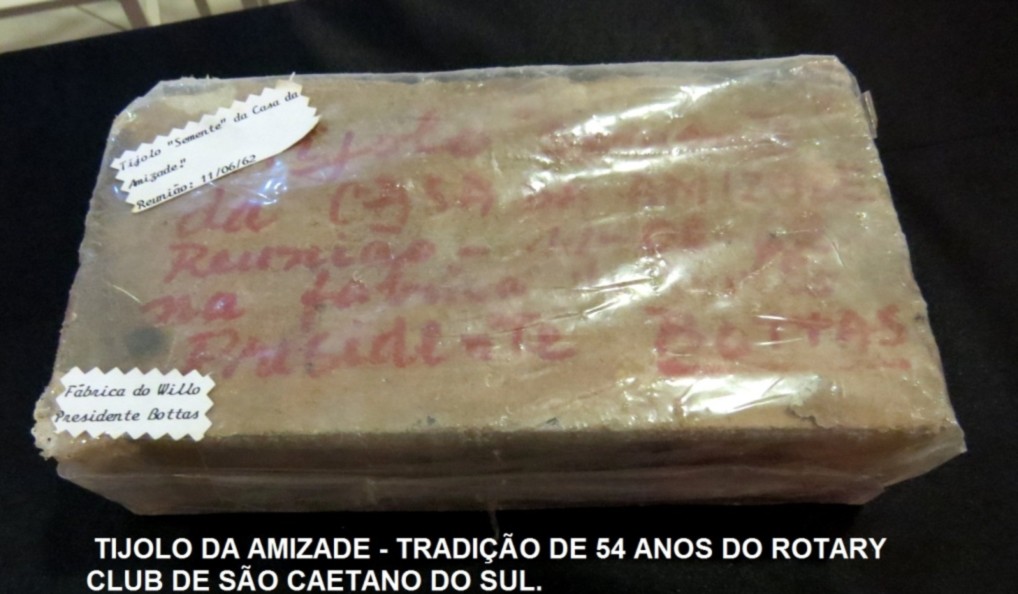 Tijolo "Semente" da Casa da
Amizade"
Reunião: 11/06/62
da CASA da AMIZADE
Reunião -
na fabrica
Presidente BOTTAS
Fábrica do Willo
Presidente Bottas
TIJOLO DA AMIZADE - TRADIÇÃO DE 54 ANOS DO ROTARY
CLUB DE SÃO CAETANO DO SUL.